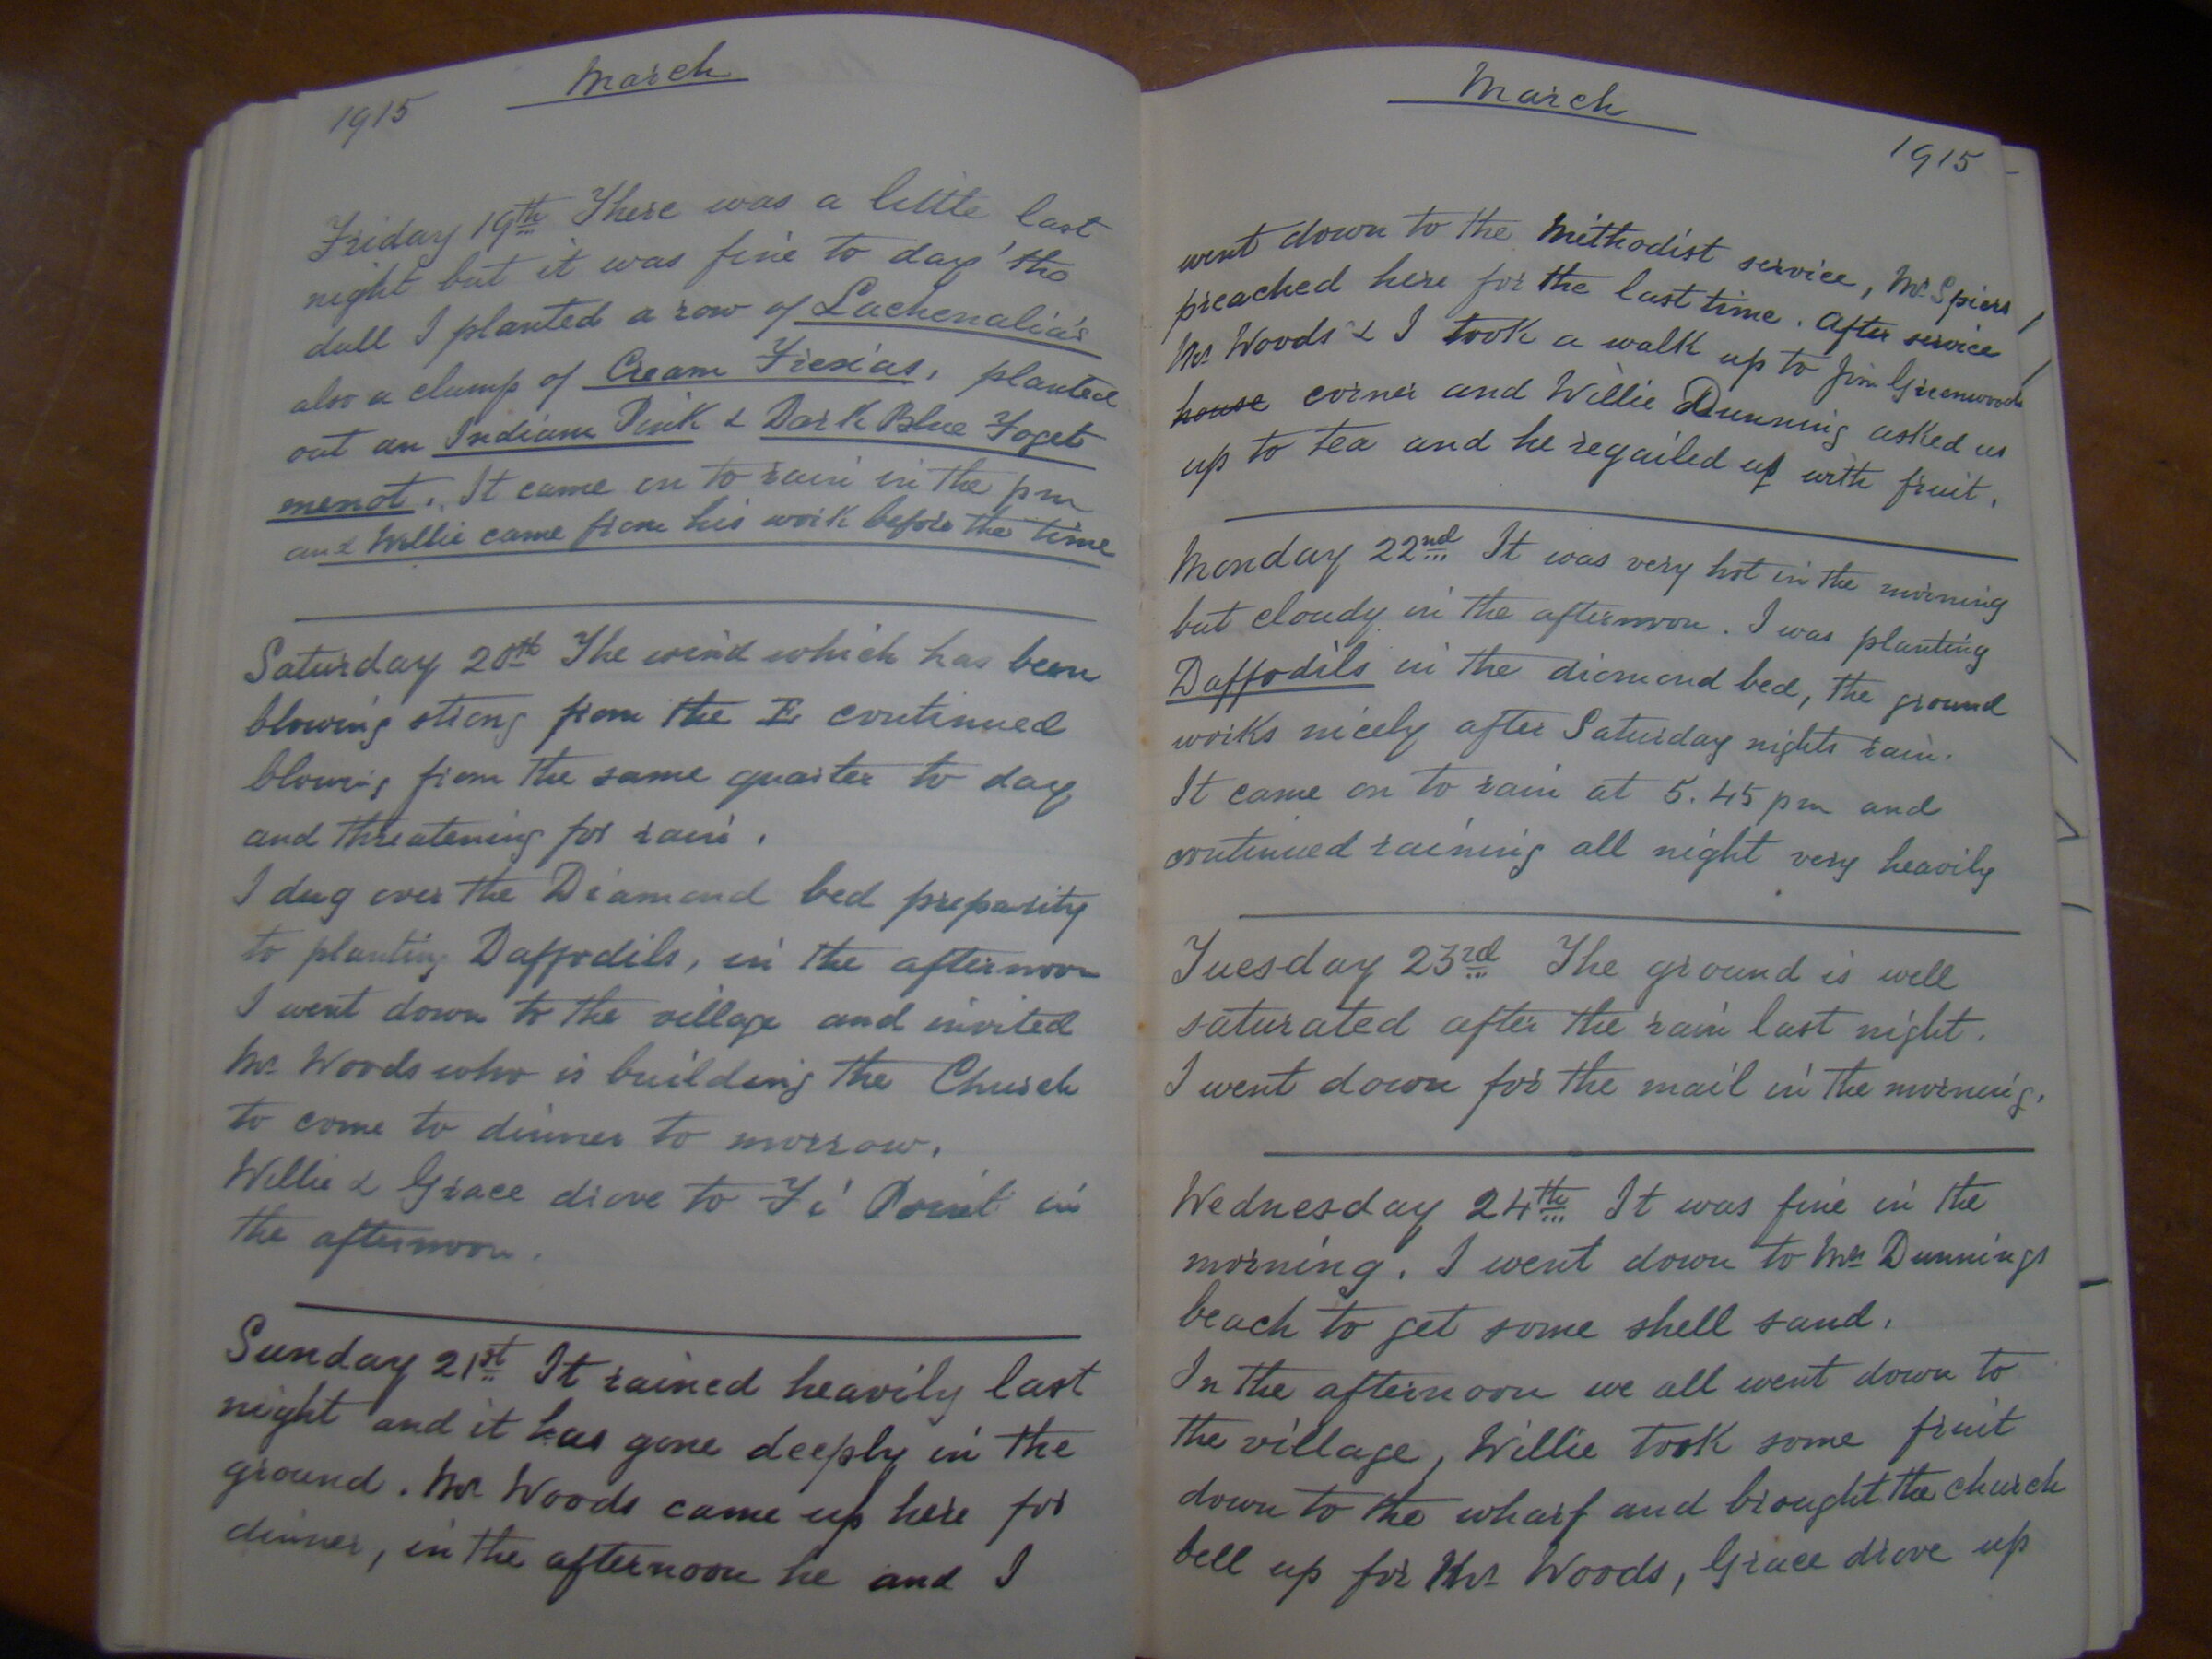 March
1915
Friday 19th There was a little last
night but it was fine to day tho
dull I planted a row of Lachenalia's
also a clump of Cream Fresias, planted
out an Indian Pink & Dark Blue Foget
menot. It came on to rain in the pm
and Willie came from his work before the time
Saturday 20th The wind which has been
blowing strong from the E continued
blowing from the same quarter to day
and threatening for rain.
I dug over the Diamond bed preparity
to planting Daffodils, in the afternoon
I went down to the village and invited
Mr Woods who is building the Church
to come to dinner to morrow.
Willie & Grace drove to Ti Point in
the afternoon.
Sunday 21st It rained heavily last
night and it has gone deeply in the
ground. Mr Woods came up here for
dinner, in the afternoon he and I
March
1915
went down to the Methodist service, Mr Spiers
preached here for the last time. After service
Mr Woods & I took a walk up to Jim Greenwoods
house corner and Willie Dunning asked us
up to tea and he regailed up with fruit.
Monday 22nd It was very hot in the morning
but cloudy in the afternoon. I was planting
Daffodils in the diamond bed, the ground
works nicely after Saturday nights rain.
It came on to rain at 5.45 pm and
continued raining all night very heavily
Tuesday 23rd The ground is well
saturated after the rain last night.
I went down for the mail in the morning.
Wednesday 24th It was fine in the
morning. I went down to Mrs Dunnings
beach to get some shell sand.
In the afternoon we all went down to
the village, Willie took some fruit
down to the wharf and brought the church
bell up for Mr Woods, Grace drove up